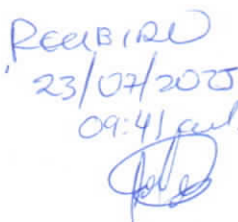 RECIBIDO
23/07/2025
09:41 am